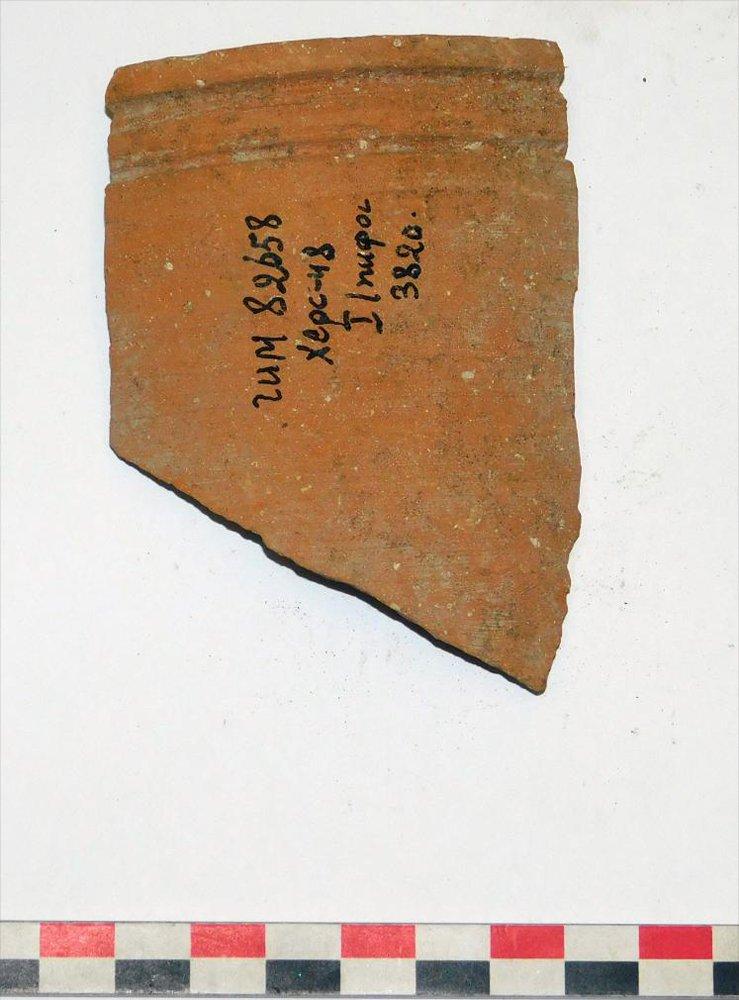 гим 82658
Херс-48
I/пифос
3820.